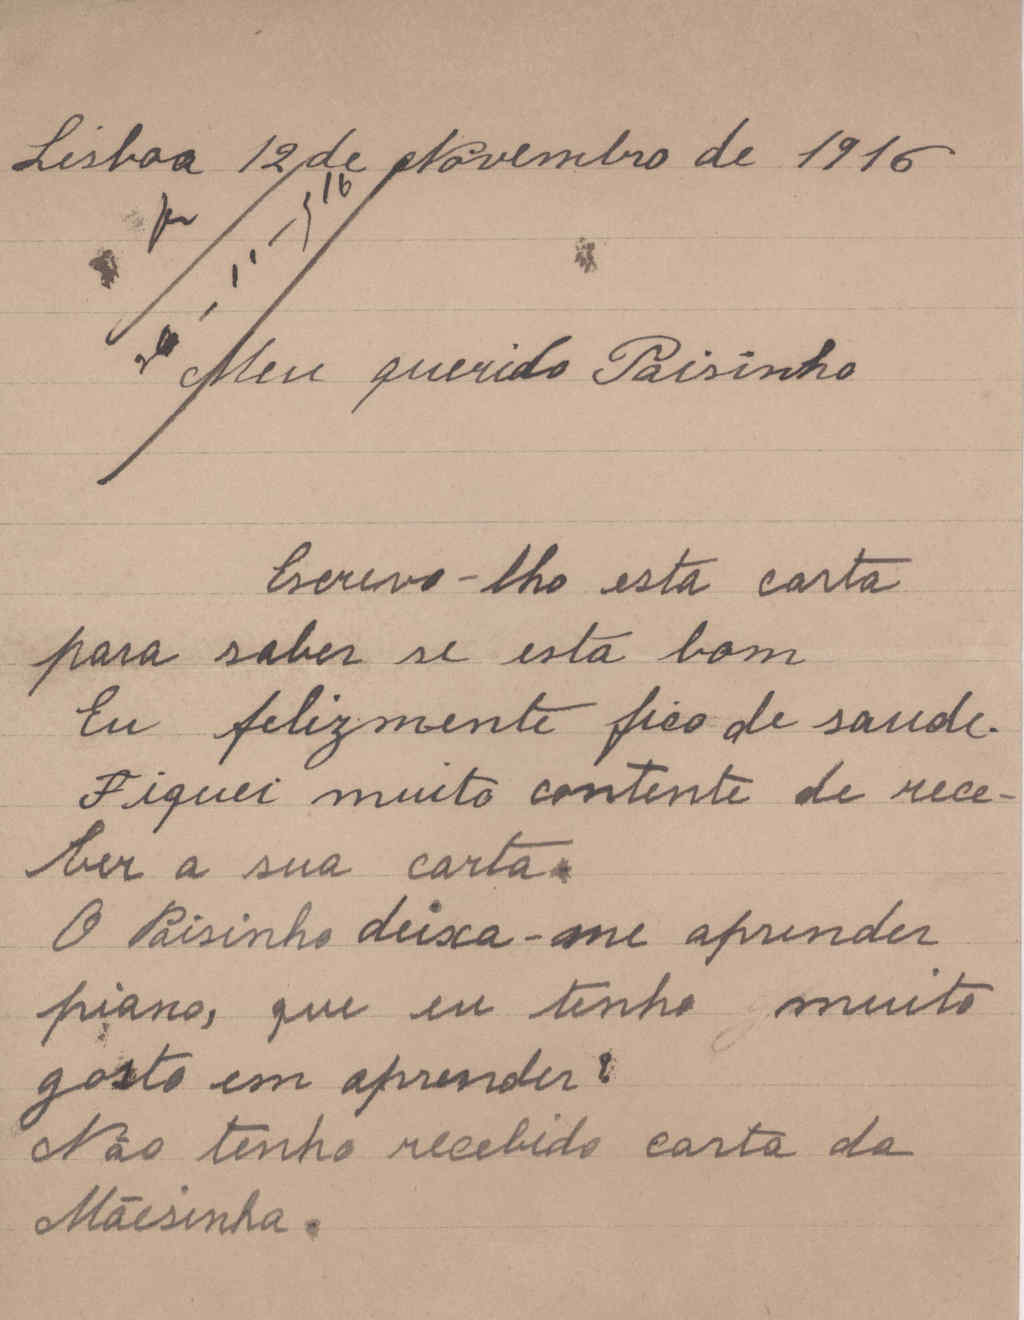 Lisboa 12 de Novembro de 1916
Meu querido Paisinho
Escrevo-lho esta carta
para saber se esta bom
Eu felizmente fico de saude.
Fiquei muito contente de rece-
ber a sua carta.
O Paisinho deixa-me aprender
piano, que eu tenho muito
gosto em aprender?
Não tenho recebido carta da
Mãesinha.